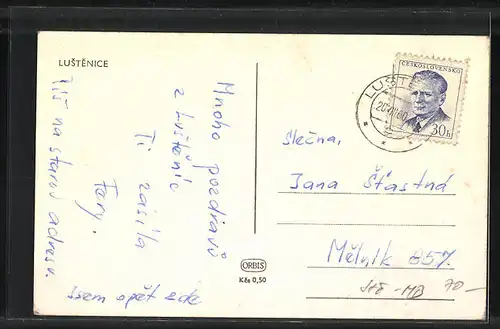 LUŠTĚNICE
Mnoho pozdravů
z Luštěnic
Ti zasílá
Fany.
Piš na starou adresu.
Jsem opět zde
ČESKOSLOVENSKO
30 h
LUŠTĚ
60
Slečna,
Jana Šťastná
Mělník 857.
ORBIS
Kčs 0,50
MB 70-